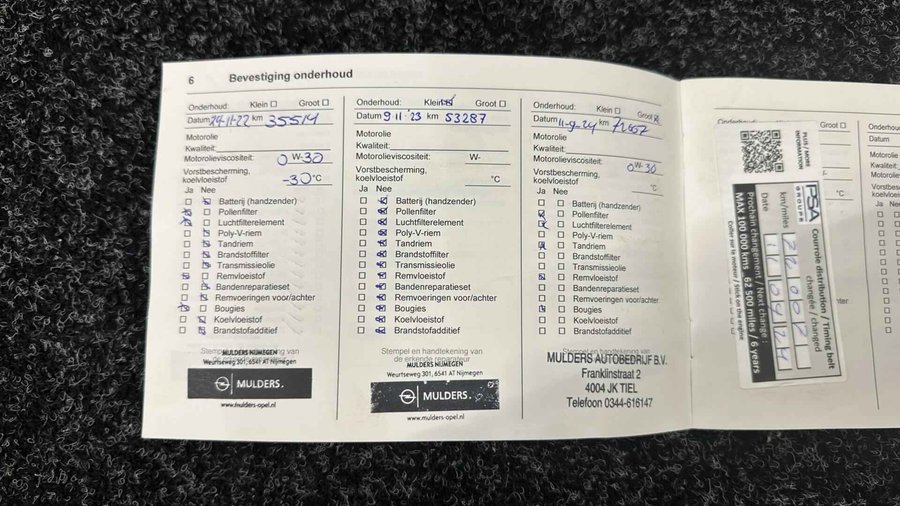 6 Bevestiging onderhoud
Onderhoud: Klein Groot
Datum 24-11-22 km 35514
Motorolie
Kwaliteit:
Motorolieviscositeit: 0 W-30
Vorstbescherming,
koelvloeistof -30 °C
Ja Nee
Batterij (handzender)
Pollenfilter
Luchtfilterelement
Poly-V-riem
Tandriem
Brandstoffilter
Transmissieolie
Remvloeistof
Bandenreparatieset
Remvoeringen voor/achter
Bougies
Koelvloeistof
Brandstofadditief
Stempel en handtekening van
MULDERS NIJMEGEN
Weurtseweg 301, 6541 AT Nijmegen
MULDERS.
www.mulders-opel.nl
Onderhoud: Klein Groot
Datum 9-11-'23 km 53287
Motorolie
Kwaliteit:
Motorolieviscositeit: W-
Vorstbescherming,
koelvloeistof °C
Ja Nee
Batterij (handzender)
Pollenfilter
Luchtfilterelement
Poly-V-riem
Tandriem
Brandstoffilter
Transmissieolie
Remvloeistof
Bandenreparatieset
Remvoeringen voor/achter
Bougies
Koelvloeistof
Brandstofadditief
Stempel en handtekening van
de erkende reparateur
MULDERS NIJMEGEN
Weurtseweg 301, 6541 AT Nijmegen
MULDERS.
www.mulders-opel.nl
Onderhoud: Klein Groot
Datum 11-9-24 km
Motorolie
Kwaliteit:
Motorolieviscositeit:
0W-30
Vorstbescherming,
koelvloeistof °C
Ja Nee
Batterij (handzender)
Pollenfilter
Luchtfilterelement
Poly-V-riem
Tandriem
Brandstoffilter
Transmissieolie
Remvloeistof
Bandenreparatieset
Remvoeringen voor/achter
Bougies
Koelvloeistof
Brandstofadditief
Stempel en handtekening van
MULDERS AUTOBEDRIJF B.V.
Franklinstraat 2
4004 JK TIEL
Telefoon 0344-616147
Groot
km
W-
°C
PLUS / MORE
INFORMATION
PSA
GROUPE
Courroie distribution / Timing belt
changée / changed
km/miles
Date
Prochain changement / Next change :
MAX 100 000 kms 62 500 miles / 6 years
Coller sur le moteur / stick on the engine
Onderhoud
Datum
Motorolie
Kwaliteit:
Motorolievi
Vorstbesche
koelvloeistof
Ja Nee